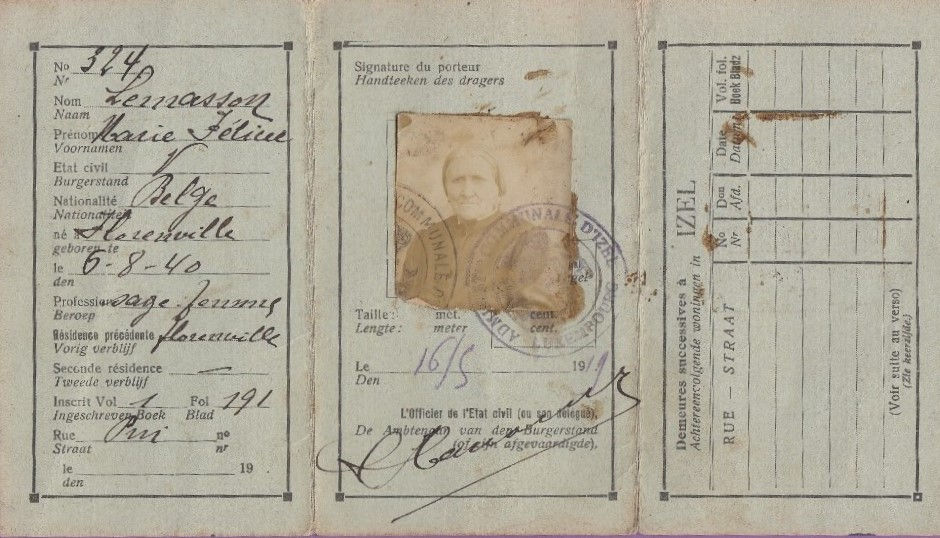 No 324
Nr
Nom Lemasson
Naam
Prénoms Marie Félicie
Voornamen
Etat civil V
Burgerstand
Nationalité Belge
Nationaliteit
né à Florenville
geboren te
le 6-8-40
den
Profession sage-femme
Beroep
Résidence précédente florenville
Vorig verblijf
Seconde résidence —
Tweede verblijf
Inscrit Vol 1 Fol 191
Ingeschreven Boek Blad
Rue no
Straat nr
le 19
den
Signature du porteur
Handteeken des dragers
COMMUNALE
ADMIN UNALE D'IZEL
LUXEMBOURG
Taille: met. cent.
Lengte: meter cent.
Le 16/5 1919
Den
L'Officier de l'Etat civil (ou son délégué),
De Ambtenaar van den Burgerstand
(of zijn afgevaardigde),
Demeures successives à IZEL
Achtereenvolgende woningen in
RUE — STRAAT
No Nr
Don Afd.
Date Datum
Vol. fol. Boek Bladz
(Voir suite au verso)
(Zie keerzijde.)